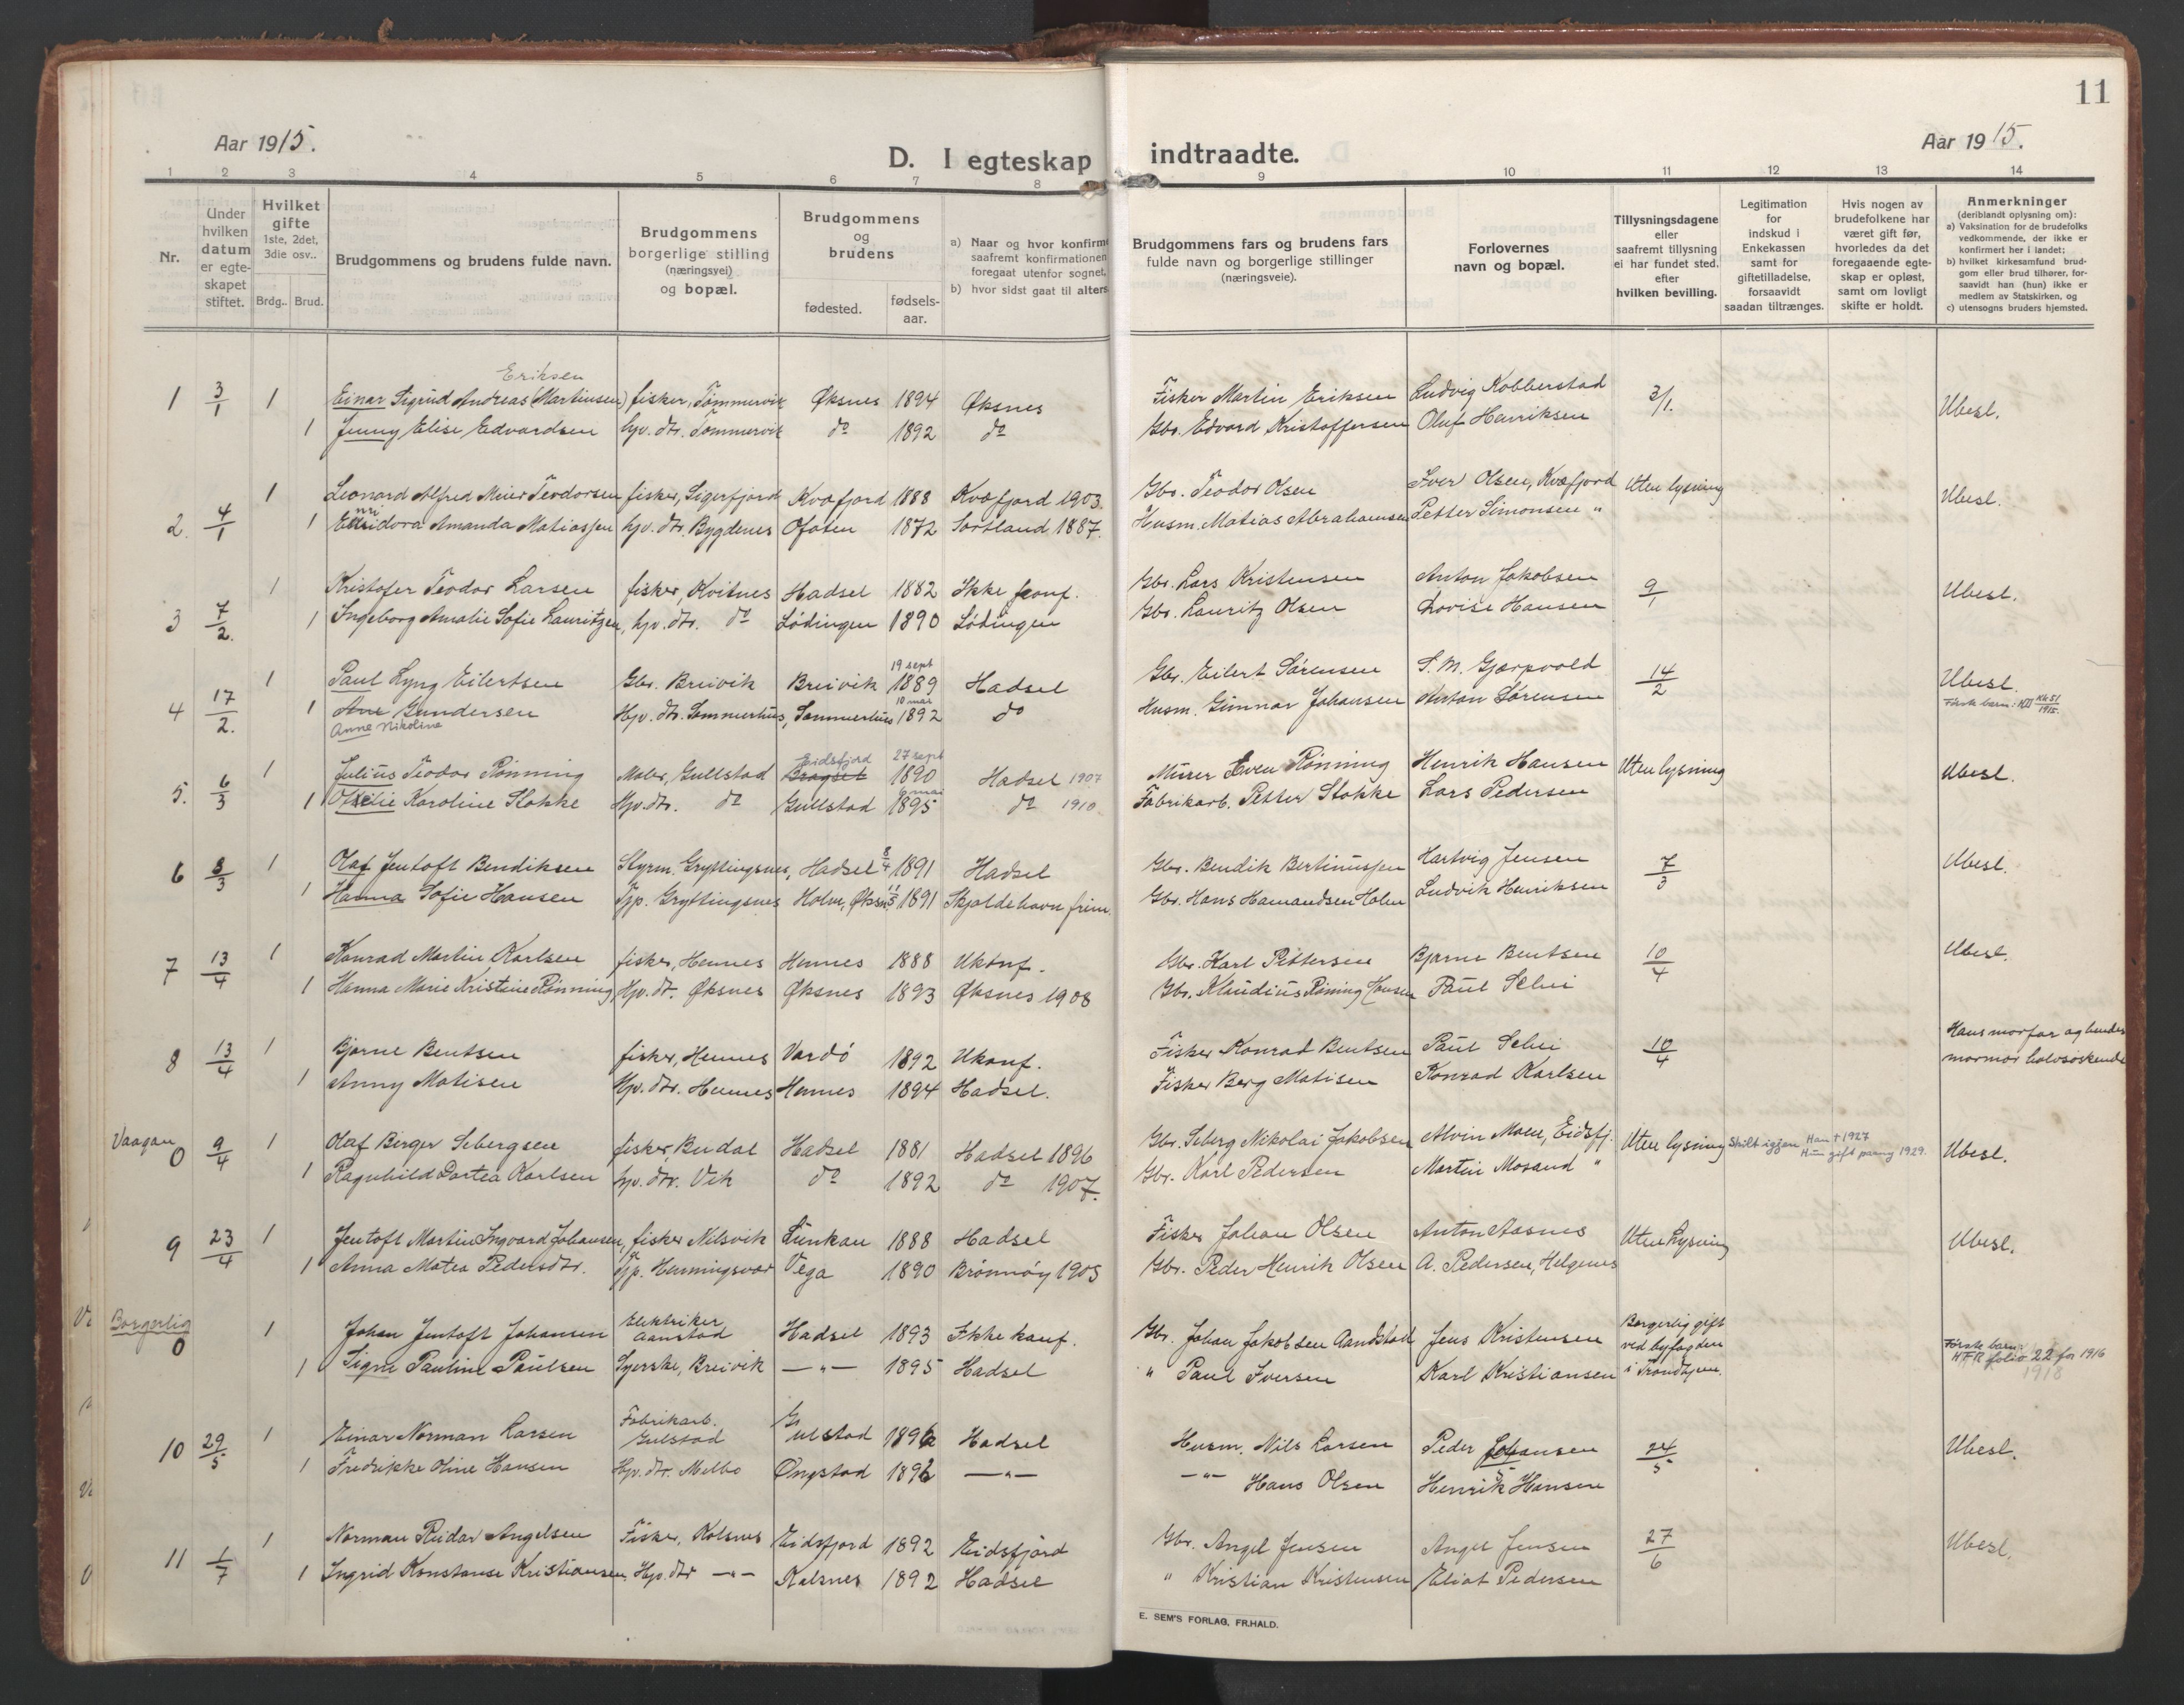 11
Aar 1915.
D. I egteskap indtraadte.
Aar 1915.
1 2 3 4 5 6 7 8 9 10 11 12 13 14
Nr.
Under hvilken datum er egte-skapet stiftet.
Hvilket gifte 1ste, 2det, 3die osv..
Brdg.. Brud.
Brudgommens og brudens fulde navn.
Brudgommens borgerlige stilling (næringsvei) og bopæl.
Brudgommens og brudens
fødested.
fødsels-aar.
a) Naar og hvor konfirme
saafremt konfirmationen
foregaat utenfor sognet,
b) hvor sidst gaat til alters
Brudgommens fars og brudens fars fulde navn og borgerlige stillinger (næringsveie).
Forlovernes navn og bopæl.
Tillysningsdagene eller saafremt tillysning ei har fundet sted, efter hvilken bevilling.
Legitimation for indskud i Enkekassen samt for giftetilladelse, forsaavidt saadan tiltrænges.
Hvis nogen av brudefolkene har været gift før, hvorledes da det foregaaende egte-skap er opløst, samt om lovligt skifte er holdt.
Anmerkninger
(deriblandt oplysning om):
a) Vaksination for de brudefolks vedkommende, der ikke er konfirmert her i landet;
b) hvilket kirkesamfund brud-gom eller brud tilhører, for-saavidt han (hun) ikke er medlem av Statskirken, og
c) utensogns bruders hjemsted.
Eriksen
1 3/1 1 Einar Sigrud Andreas (Martinsen) fisker, Tömmervik Øksnes 1894 Øksnes Fisker Martin Eriksen Ludvig Kobberstad 3/1. Ubesl.
1 Jenny Elise Edvardsen hjv. dtr. Tömmervik do 1892 do Gbr. Edvard Kristoffersen Oluf Henriksen
1 Leonard Alfred Meier Teodorsen fisker, Sigerfjord Kvæfjord 1888 Kvæfjord 1903. Gbr. Teodor Olsen Iver Olsen, Kvæfjord Uten lysning Ubesl.
2. 4/1 1 Amanda Matiassen hjv. dtr. Bygdenes Ofoten 1872 Sortland 1887. Husm. Matias Abrahamsen Petter Simonsen "
1 Kristofer Teodor Larsen fisker, Kvitnes Hadsel 1882 Ikke konf. Gbr. Lars Kristensen Anton Jakobsen 9/1 Ubesl.
3 7/2. 1 Ingeborg Amalie Sofie Lauritzen, hjv. dtr. do Lödingen 1890 Lödingen Gbr. Lauritz Olsen Lovise Hansen
19 sept
1 Paul Lyng Eilertsen Gbr. Breivik Breivik 1889 Hadsel Gbr. Eilert Sørensen S. M. Gjærpvold 14/2 Ubesl.
10 mai
4 17/2. 1 Ane Gundersen Hjv. dtr. Sommerhus, Sommerhus 1892 do Husm. Gunnar Johansen Anton Sørensen Første barn: KII Kk 51/1915.
Anne Nikoline
Eidsfjord 27 sept
5. 6/3 1 Julius Teodor Rönning Maler, Gullstad Bragset 1890 Hadsel 1907 Murer Even Rönning Henrik Hansen Uten lysning Ubesl.
6 mai
1 Otelie Karoline Stokke Hjv. dtr. do Gullstad 1895 do 1910. Fabrikarb. Petter Stokke Lars Pedersen
6 8/3 1 Olaf Jentoft Bendiksen Styrm. Gryttingsnes, Hadsel 8/4 1891 Hadsel Gbr. Bendik Bertinussen Hartvig Jensen 7/3 Ubesl.
1 Hanna Sofie Hansen Tjp. Gryttingsnes Holm, Øksn. 11/5 1891 Skjoldehavn frim. Gbr. Hans Hamandsen Holm Ludvik Henriksen
7 13/4 1 Konrad Martin Karlsen fisker, Hennes Hennes 1888 Ukonf. Gbr. Karl Pettersen Bjarne Bentsen 10/4 Ubesl.
1 Hanna Marie Kristine Rönning Hjv. dtr. Øksnes Øksnes 1893 Øksnes 1908 Gbr. Klaudius Röning Hansen Paul Selni
8 13/4 1 Bjarne Bentsen fisker, Hennes Vardö 1892 Ukonf. Fisker Konrad Bentsen Paul Selni 10/4 Hans morfar og hendes
1 Anny Matisen Hjv. dtr. Hennes Hennes 1894 Hadsel. Fisker Berg Matisen Konrad Karlsen mormor halvsøskende
Vaagan 0 9/4 1 Olaf Birger Sebergsen fisker, Budal Hadsel 1881 Hadsel 1896 Gbr. Seberg Nikolai Jakobsen Alvin Moen, Eidsfj. Uten lysning Skilt igjen Han † 1927 Hun gift paany 1929. Ubesl.
1 Ragnhild Dortea Karlsen hjv. dtr. Vik do 1892 do 1907. Gbr. Karl Pedersen Martin Mosand "
9 23/4 1 Jentoft Martin Ingvard Johansen, fisker Nilsvik Lunkan 1888 Hadsel Fisker Johan Olsen Anton Aasnes Uten Lysning Ubesl.
1 Anna Matea Pedersdtr. Tjp. Henningsvær Vega 1890 Brönnöy 1905 Gbr. Peder Henrik Olsen A. Pedersen, Helgenes
Borgerlig 0 1 Johan Jentoft Johansen Elektriker Aanstad Hadsel 1893 Ikke konf. Gbr. Johan Jakobsen Aandstad Jens Kristensen Borgerlig gift ved byfogden i Trondhjem. Første barn: HFR folio 22 for 1916
1918
1 Signe Pauline Paulsen Syerske, Breivik —"— 1895 Hadsel " Paul Iversen Karl Kristiansen
10 29/5 1 Einar Norman Larsen Fabrikarb. Gulstad Gulstad 1896 Hadsel Husm. Nils Larsen Peder Johansen 24/5 Ubesl.
1 Fredrikke Oline Hansen Hjv. dtr. Melbo Øngstad 1896 —"— —"— Hans Olsen Henrik Hansen
11 1/7 1 Norman Reidar Angelsen Fisker, Kalsnes Eidsfjord 1892 Eidsfjord Gbr. Angel Jensen Angel Jensen 27/6 Ubesl.
1 Ingrid Konstanse Kristiansen Hjv. dtr —"— Kalsnes 1892 Hadsel " Kristian Kristensen Eliot Pedersen
E. SEM'S FORLAG, FR.HALD.